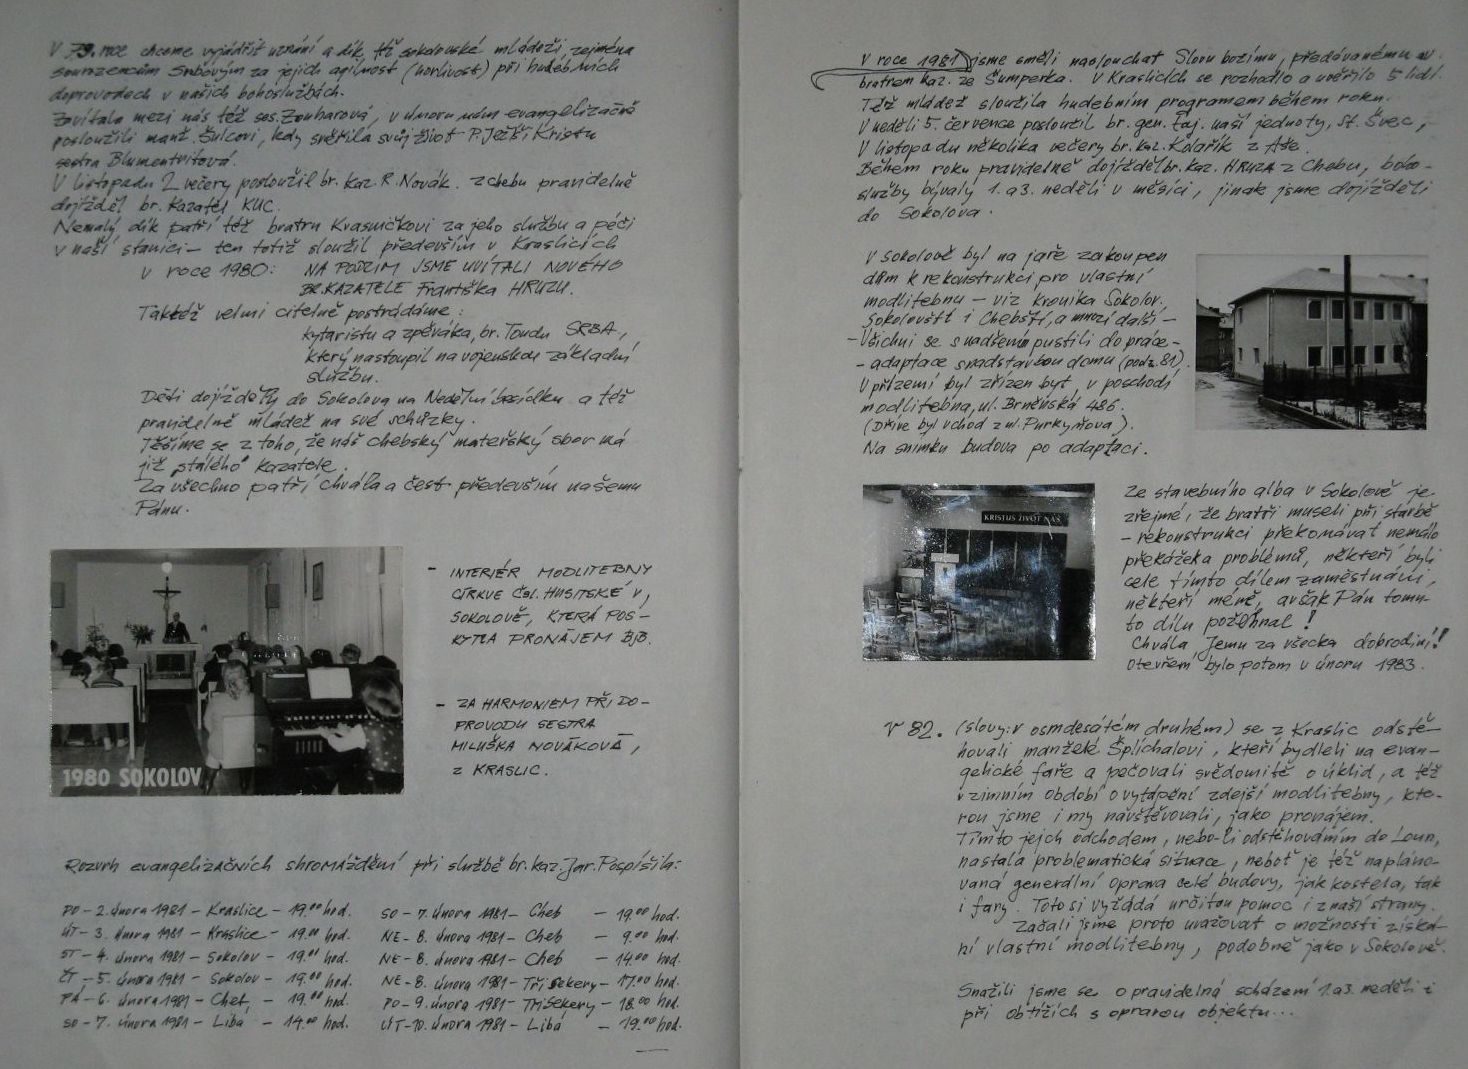 V 79. roce chceme vyjádřit uznání a dík též sokolovské mládeži, zejména
sourozencům Srbovým za jejich agilnost (horlivost) při hudebních
doprovodech v našich bohoslužbách.
Zavítala mezi nás též ses. Zouharová, v únoru nám evangelizačně
posloužili manž. Šulcovi, kdy svěřila svůj život P. Ježíši Kristu
sestra Blumentritová.
V listopadu 2 večery posloužil br. kaz. R. Novák. z chebu pravidelně
dojížděl br. Kazatel KUC.
Nemalý dík patří též bratru Krasničkovi za jeho službu a péči
v naší stanici – ten totiž sloužil především v Kraslicích
v roce 1980: NA PODZIM JSME UVÍTALI NOVÉHO
BR. KAZATELE Františka HRUZU.
Taktéž velmi citelně postrádáme:
kytaristu a zpěváka, br. Toudu SRBA,
který nastoupil na vojenskou základní
službu.
Děti dojížděly do Sokolova na Nedělní besídku a též
pravidelně mládež na své schůzky.
Těšíme se z toho, že náš chebský mateřský sbor má
již "stálého" kazatele.
Za všechno patří chvála a čest především našemu
Pánu.
1980 SOKOLOV
- INTERIÉR MODLITEBNY
CÍRKVE ČSL. HUSITSKÉ V,
SOKOLOVĚ, KTERÁ POS-
KYTLA PRONÁJEM BJB.
- ZA HARMONIEM PŘI DO-
PROVODU SESTRA
MILUŠKA NOVÁKOVÁ,
Z KRASLIC.
Rozvrh evangelizačních shromáždění při službě br. kaz. Jar. Pospíšila:
PO – 2. února 1981 – Kraslice – 19.00 hod.
ÚT – 3. února 1981 – Kraslice – 19.00 hod.
ST – 4. února 1981 – Sokolov – 19.00 hod.
ČT – 5. února 1981 – Sokolov – 19.00 hod.
PÁ – 6. února 1981 – Cheb, – 19.00 hod.
SO – 7. února 1981 – Libá – 14.00 hod.
SO – 7. února 1981 – Cheb – 19.00 hod.
NE – 8. února 1981 – Cheb – 9.00 hod.
NE – 8. února 1981 – Cheb – 14.00 hod.
NE – 8. února 1981 – Tři sekery – 17.00 hod.
PO – 9. února 1981 – Tři Sekery – 18.00 hod.
ÚT – 10. února 1981 – Libá – 19.00 hod.
V roce 1981 jsme směli naslouchat Slovu božímu, předávanému
bratrem kaz. ze Šumperka. V Kraslicích se rozhodlo a uvěřilo 5 lidí.
Též mládež sloužila hudebním programem během roku.
V neděli 5. července posloužil br. gen. taj. naší jednoty, St. Švec,
V listopadu několika večery br. kaz. Kolařík z Aše.
Během roku pravidelně dojížděl br. kaz. HRUZA z Chebu, boho-
služby bývaly 1. a 3. neděli v měsíci, jinak jsme dojížděli
do Sokolova.
V Sokolově byl na jaře zakoupen
dům k rekonstrukci pro vlastní
modlitebnu – viz kronika Sokolov.
Sokolovští i Chebští, a mnozí další –
– Všichni se s nadšením pustili do práce –
– adaptace s nadstavbou domu (podz. 81).
V přízemí byl zřízen byt, v poschodí
modlitebna, ul. Brněnská 486.
(Dříve byl vchod z ul. Purkyňova).
Na snímku budova po adaptaci.
KRISTUS ŽIVOT NÁŠ
Ze stavebního alba v Sokolově je
zřejmé, že bratři museli při stavbě
– rekonstrukci překonávat nemálo
překážek a problémů, někteří byli
cele tímto dílem zaměstnáni,
někteří méně, avšak Pán tomu-
to dílu požehnal!
Chvála Jemu za všecka dobrodiní!
Otevřena, bylo potom v únoru 1983.
V 82. (slovy: v osmdesátém druhém) se z Kraslic odstě-
hovali manželé Šplíchalovi, kteří bydleli na evan-
gelické faře a pečovali svědomitě o úklid, a též
v zimním období o vytápění zdejší modlitebny, kte-
rou jsme i my navštěvovali, jako pronájem.
Tímto jejich odchodem, nebo-li odstěhováním do Loun,
nastala problematická situace, neboť je též napláno-
vaná generální oprava celé budovy, jak kostela, tak
i fary. Toto si vyžádá určitou pomoc i z naší strany.
Začali jsme proto uvažovat o možnosti získá-
ní vlastní modlitebny, podobně jako v Sokolově.
Snažili jsme se o pravidelná scházení 1. a 3. neděli i
při obtížích s opravou objektu...